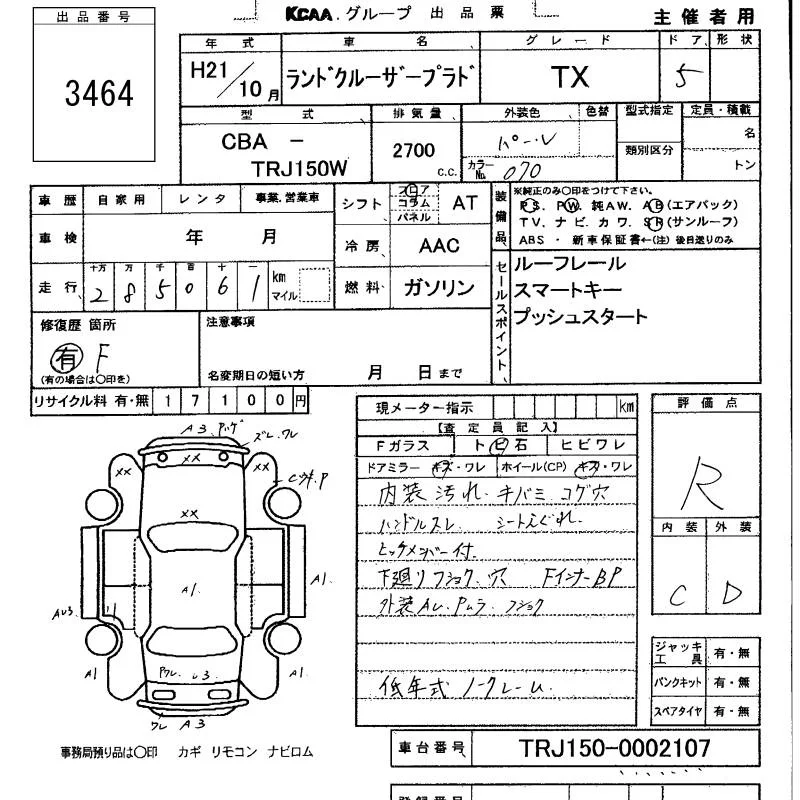 KCAA. グループ 出品票
主催者用
出品番号
3464
年式 車名 グレード ドア 形状
H21/10月 ランドクルーザープラド TX 5
型式 排気量 外装色 色替 型式指定 定員・積載
CBA - TRJ150W
2700 c.c.
パール
カラーNo. 070
類別区分
名
トン
車歴 自家用 レンタ 事業、営業車
シフト フロア コラム パネル AT
装備品
※純正のみ〇印をつけて下さい。
P.S. P.W. 純AW. A.B(エアバック)
T.V. ナビ. カワ. S.R(サンルーフ)
ABS ・ 新車保証書←(注) 後日送りのみ
車検 年 月
冷房 AAC
走行 十万 万 千 百 十 一
285061 km マイル
燃料 ガソリン
セールスポイント
ルーフレール
スマートキー
プッシュスタート
修復歴 箇所
有 F
(有の場合は〇印を)
注意事項
名変期日の短い方 月 日まで
リサイクル料 有・無 17100円
現メーター指示 km
【査定員記入】
Fガラス トビ石 ヒビワレ
ドアミラー キズ・ワレ ホイール(CP) キズ・ワレ
内装 汚れ. キバミ コゲ穴
ハンドルスレ シートえぐれ.
ヒッチメンバー付.
下廻り フショク. 穴 Fインナー BP
外装 AU. Pムラ. フショク
低年式 ノークレーム
評価点
R
内装 外装
C D
ジャッキ工具 有・無
パンクキット 有・無
スペアタイヤ 有・無
A3
ズレ.ワレ
XX
XX
XX
XX
A1
A1
A1
A1
ワレ A3
事務局預り品は〇印 カギ リモコン ナビロム
車台番号 TRJ150-0002107
登録番号